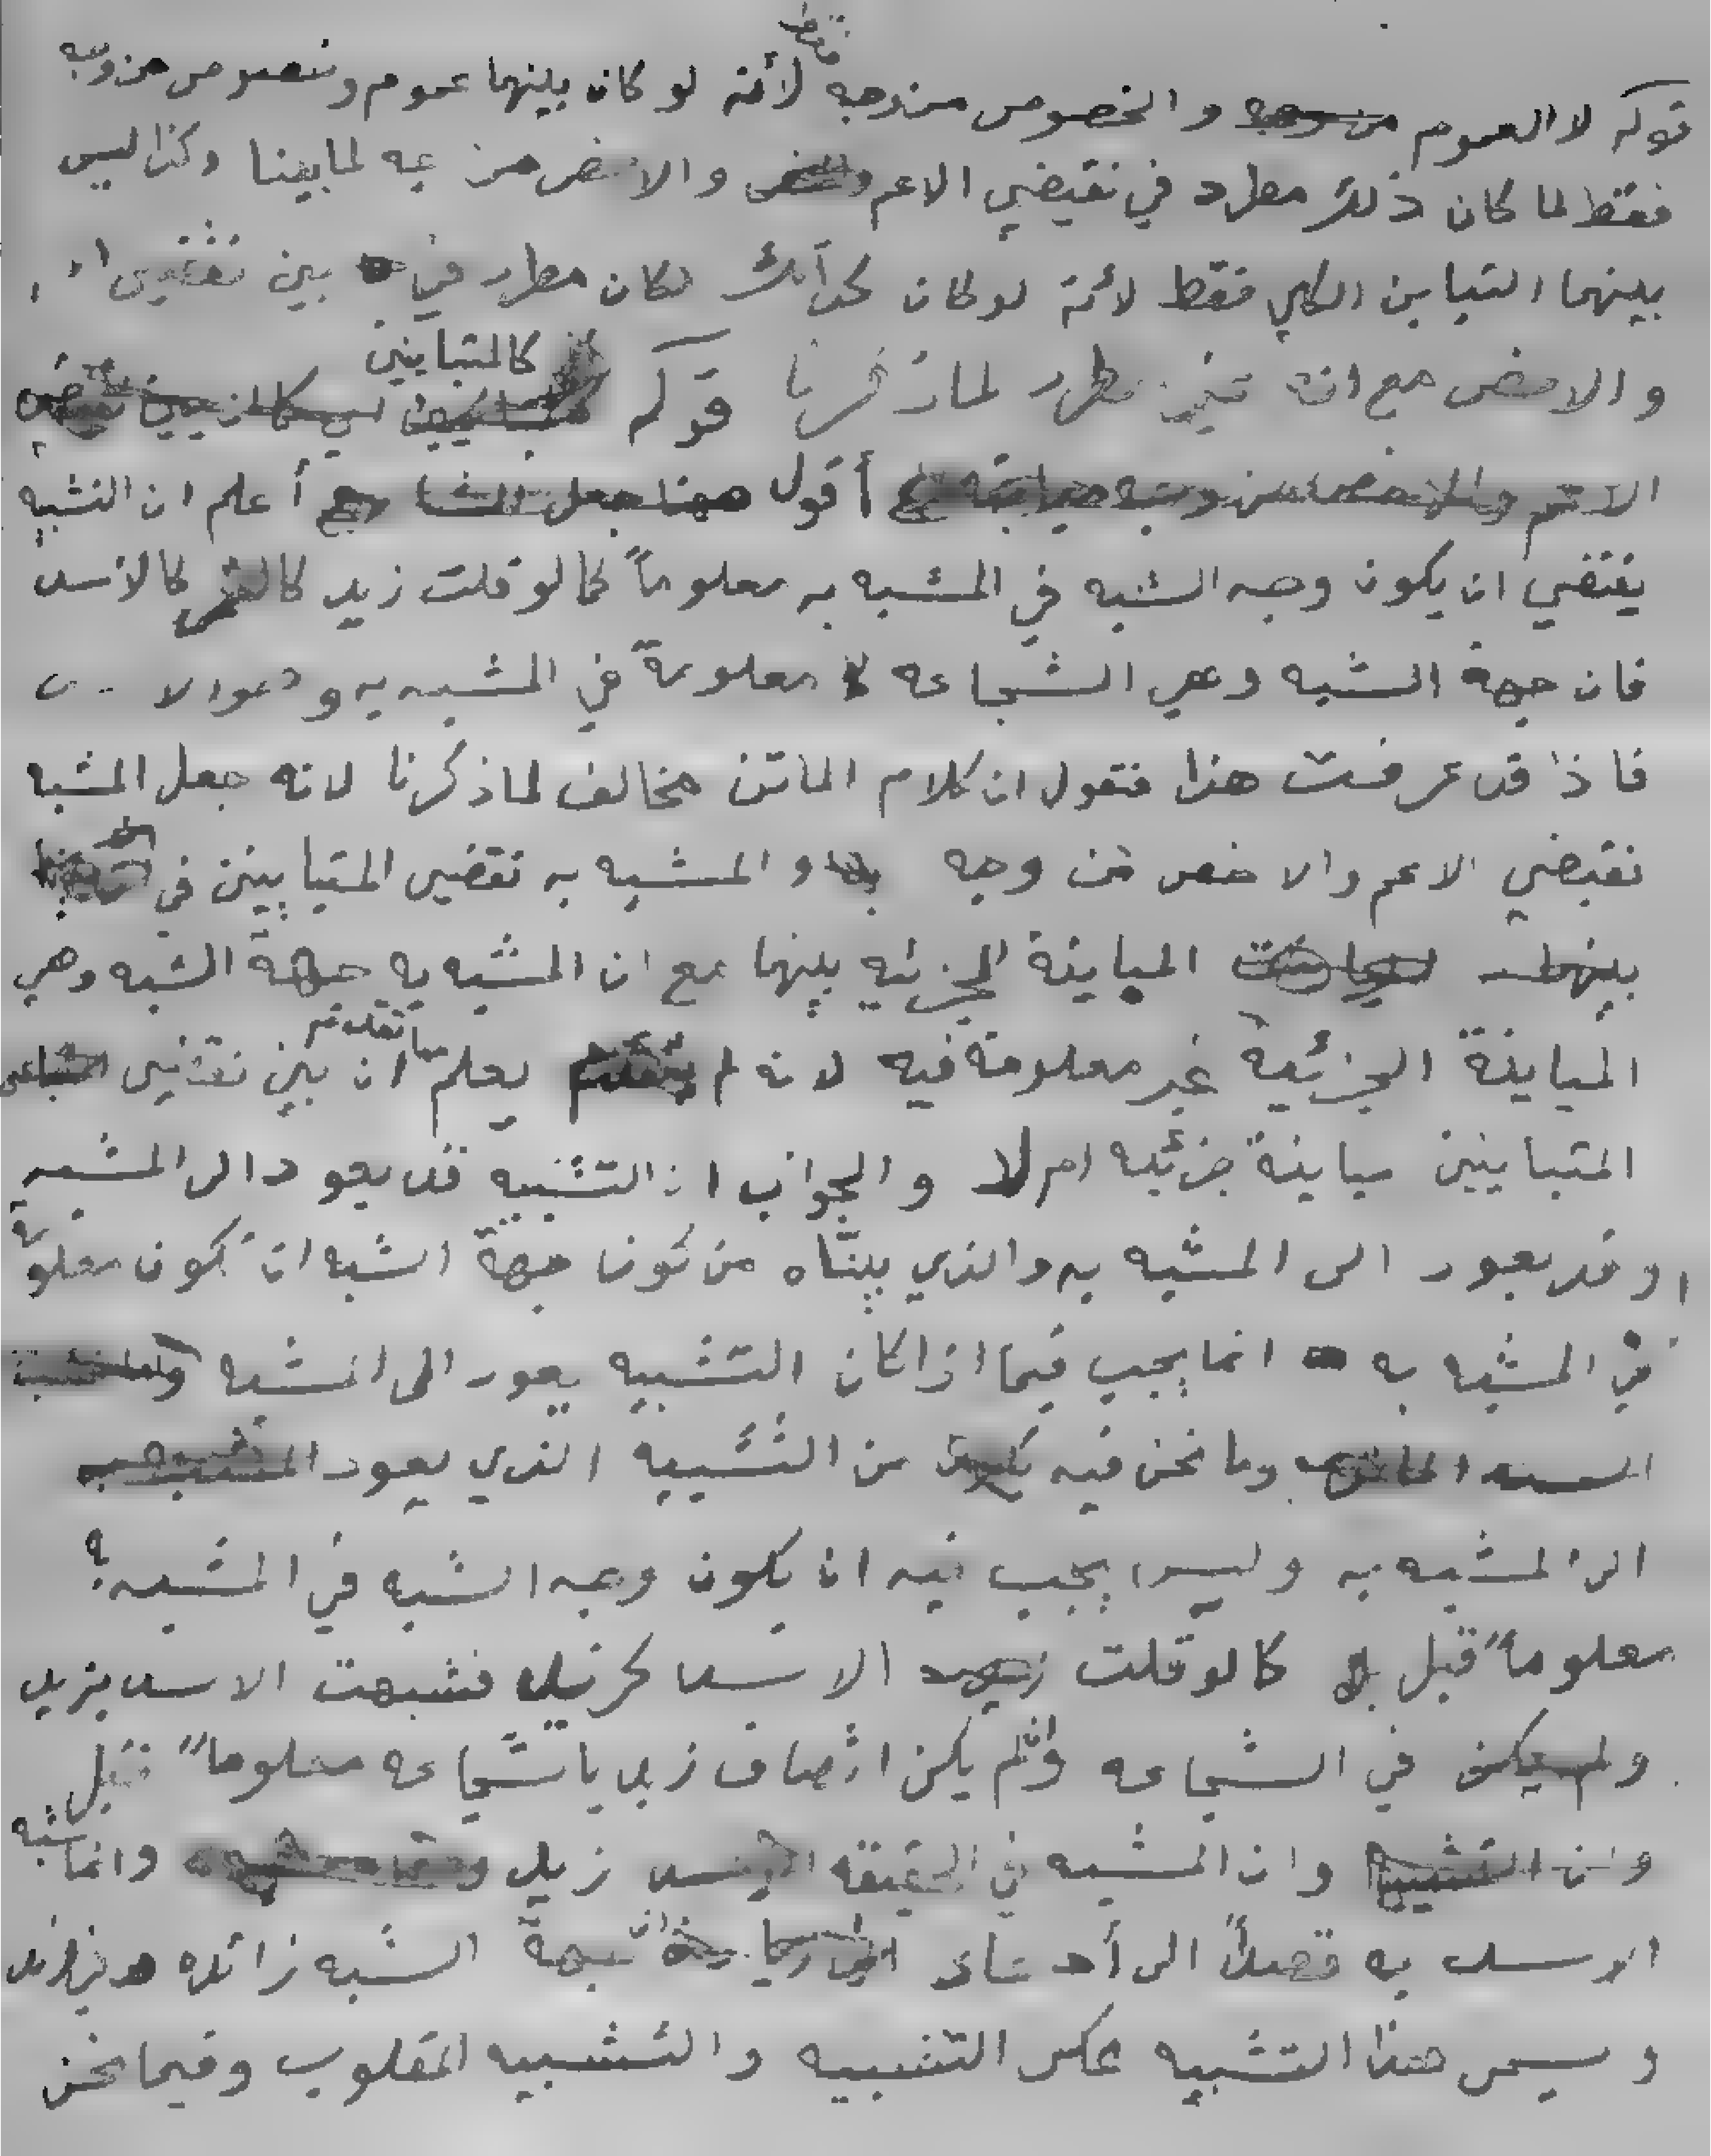 قوله لا العموم والخصوص من وجه فقط لأنه لو كان بينهما عموم وخصوص من وجه
فقط لما كان ذلك مطرد في نقيضي الاعم والاخص من وجه لما بينا وكذا ليس
بينهما التباين الكلي فقط لأنه لو كان كذلك لكان مطرد في بين نقيضي
والاخص مع انه غير مطرد لما ذكرنا قوله كالمتباينين
أقول أعلم ان التشبيه
يقتضي ان يكون وجه الشبه في المشبه به معلوماً كما لو قلت زيد كالأسد
فان جهة الشبه وهي الشجاعه معلومة في المشبه به وهو الا
فاذا قد عرفت هذا فنقول ان كلام الماتن مخالف لما ذكرنا لانه جعل المشبه
نقيضي الاعم والاخص من وجه والمشبه به نقضي المتباينين في
المباينة الجزئيه بينهما مع ان المشبه به جهة الشبه وهي
المباينة الجزئية غير معلومة فيه لانه لم يعلم مما تقدم ان بين نقيضي
المتباينين مباينة جزئيه ام لا والجواب ان التشبيه قد يعود الى المشبه
او قد يعود الى المشبه به والذي بيناه من كون جهة الشبه ان تكون معلومة
في المشبه به انما يجب فيما اذا كان التشبيه يعود الى المشبه
وما نحن فيه من التشبيه الذي يعود
الى المشبه به وليس يجب فيه ان يكون وجه الشبه في المشبه به
معلوماً قبل كما لو قلت الاسد كزيد فشبهت الاسد بزيد
في الشجاعه ولم يكن اتصاف زيد بالشجاعه معلوماً قبل
وان المشبه في الحقيقه زيد وانما شبه
الاسد به قصداً الى أدعاء ان جهة الشبه زائده في زيد
ويسمى هذا التشبيه عكس التشبيه والتشبيه المقلوب وفيما نحن